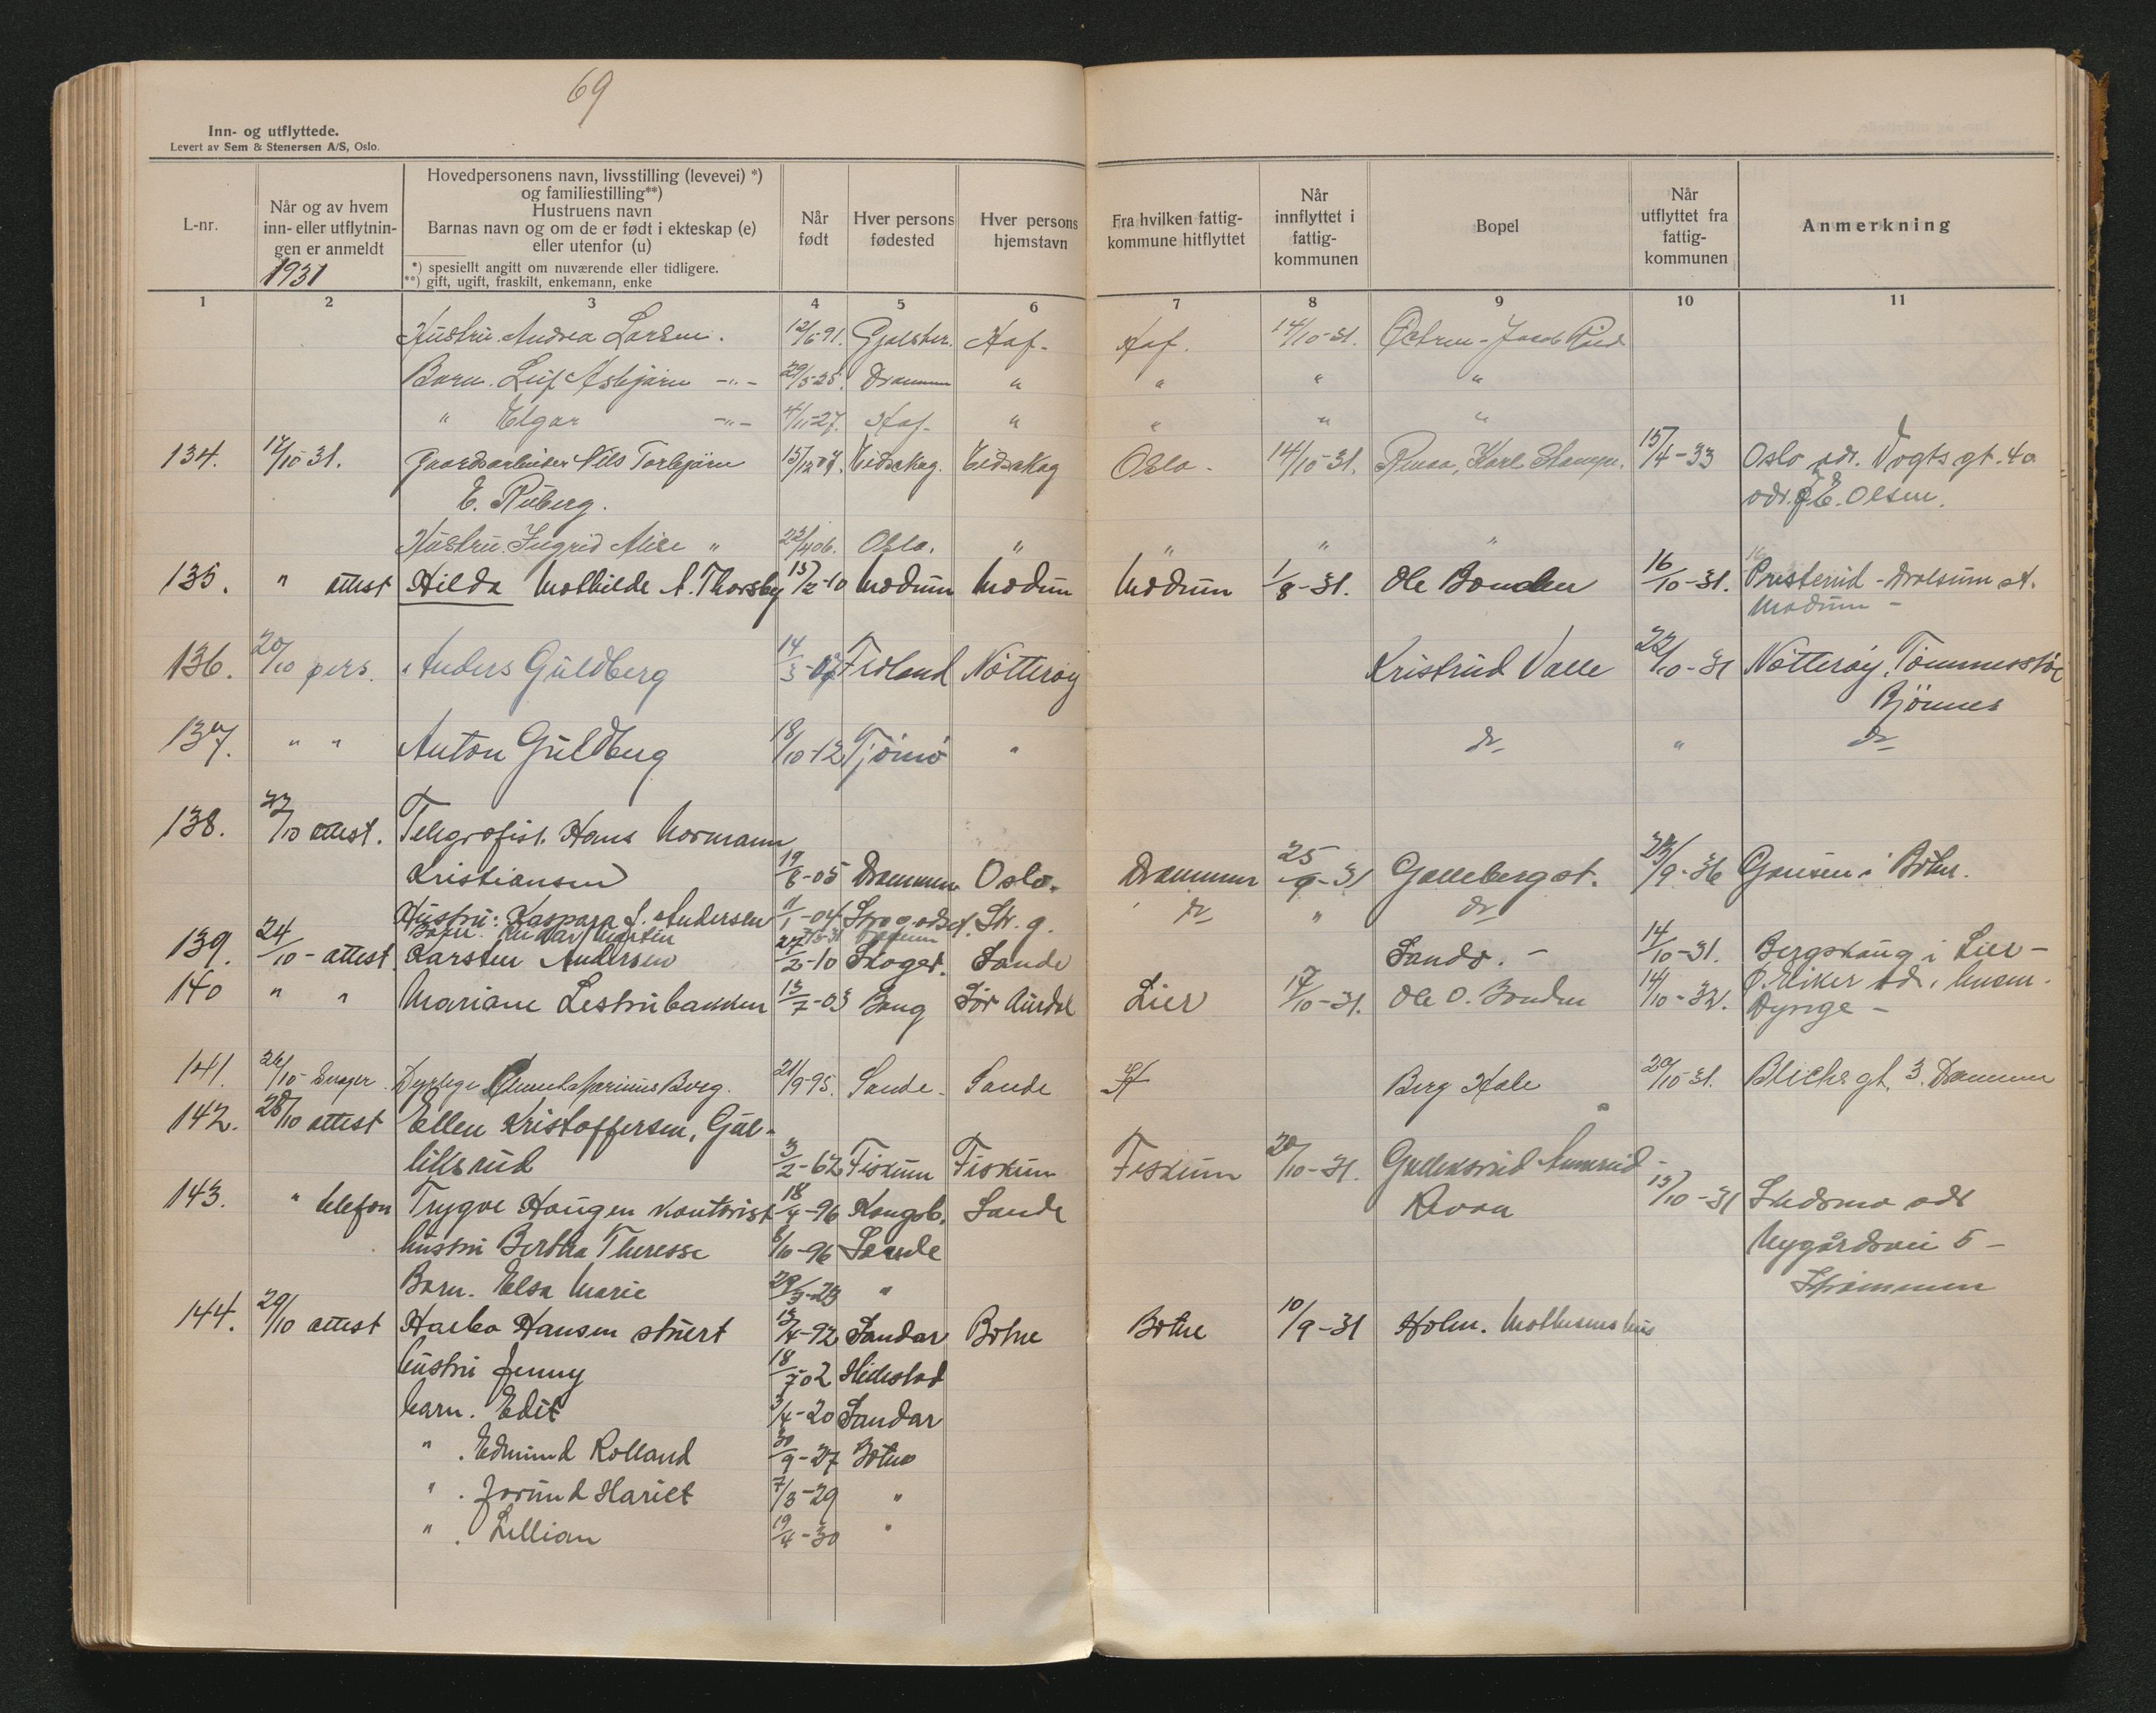 69
Inn- og utflyttede.
Levert av Sem & Stenersen A/S, Oslo.
L-nr.
Når og av hvem
inn- eller utflytnin-
gen er anmeldt
1931
Hovedpersonens navn, livsstilling (levevei) *)
og familiestilling**)
Hustruens navn
Barnas navn og om de er født i ekteskap (e)
eller utenfor (u)
*) spesiellt angitt om nuværende eller tidligere.
**) gift, ugift, fraskilt, enkemann, enke
Når
født
Hver persons
fødested
Hver persons
hjemstavn
Fra hvilken fattig-
kommune hitflyttet
Når
innflyttet i
fattig-
kommunen
Bopel
Når
utflyttet fra
fattig-
kommunen
Anmerkning
1 2 3 4 5 6 7 8 9 10 11
Hustru Andrea Larsen. 12/6-91. 14/10-31.
Barn. Leif Asbjørn -"- 29/5-25. Drammen " " " "
" Elgar -"- 4/11-27. " " " "
134. 14/10 31. Gaardsarbeider Nils Torbjørn 15/12-07. Eidskog. Eidskog Oslo. 14/10-31. Karl 15/4-33 Oslo adr. Vogts gt. 40
E. Ruberg. adr. E. Olsen.
Hustru. Ingrid Alise " 22/4 06. Oslo. " " " "
135. " attest Hilda Mathilde A. Thorsby 15/2-10 Modum Modum Modum 1/8-31. Ole Bonden 16/10-31. Presterud - Dralsum st.
Modum -
136. 20/10 pers. Anders Guldberg 14/3-07 Nøtterøy Kristrud Valle 22/10-31 Nøtterøy,
Bjönnes
137. " " Anton Guldberg 18/10-12 Tjömö " do " do
138. 23/10 attest. Telegrafist. Hans Normann
Kristiansen 19/6-05 Drammen Oslo. Drammen 25/9-31 Galleberg st. 23/9-36 i Botne.
Hustru: Kaspara J. Andersen 11/1-04 do " do
Barn.
139. 24/10 - attest. Karsten Andersen 27/2-10 Skoger. Sande Sande. - 14/10-31. Bergskaug i Lier -
140 " " Mariane Lestrubakken 13/7-03 Bang Sør Aurdal Lier 17/10-31. Ole O. Bonden 14/10-32. Ø. Eiker adr.
Dynge -
141. 26/10- Dyrlege Marinius Berg. 21/9-95. Sande. Sande Berg Hole 29/10 31. Blichs gt. 3. Drammen
142. 28/10 attest Ellen Kristoffersen, Gul-
liksrud 3/2-62 Fiskum Fiskum Fiskum 20/10-31. Gulliksrud
143. " telefon Trygve Haugen kontorist 18/4-96 Kongsb. Sande Revaa 15/10-31 Skedsmo adr
hustru Bertha Theresse 8/10-96 Sande Nygårdsvei 5 -
Barn. Elsa Marie 29/3-23 " Strømmen
144. 29/10 attest Hansen stuert 13/4-92 Sandar Botne Botne 10/9-31 Holm.
hustru Jenny 18/7 02 Hedestad
barn. Edit 3/4-20 Sandar
" . Edmund Rolland 30/9-27 Botne
" . Jorund Hariet 7/3-29 "
" . Lillian 19/4-30 "